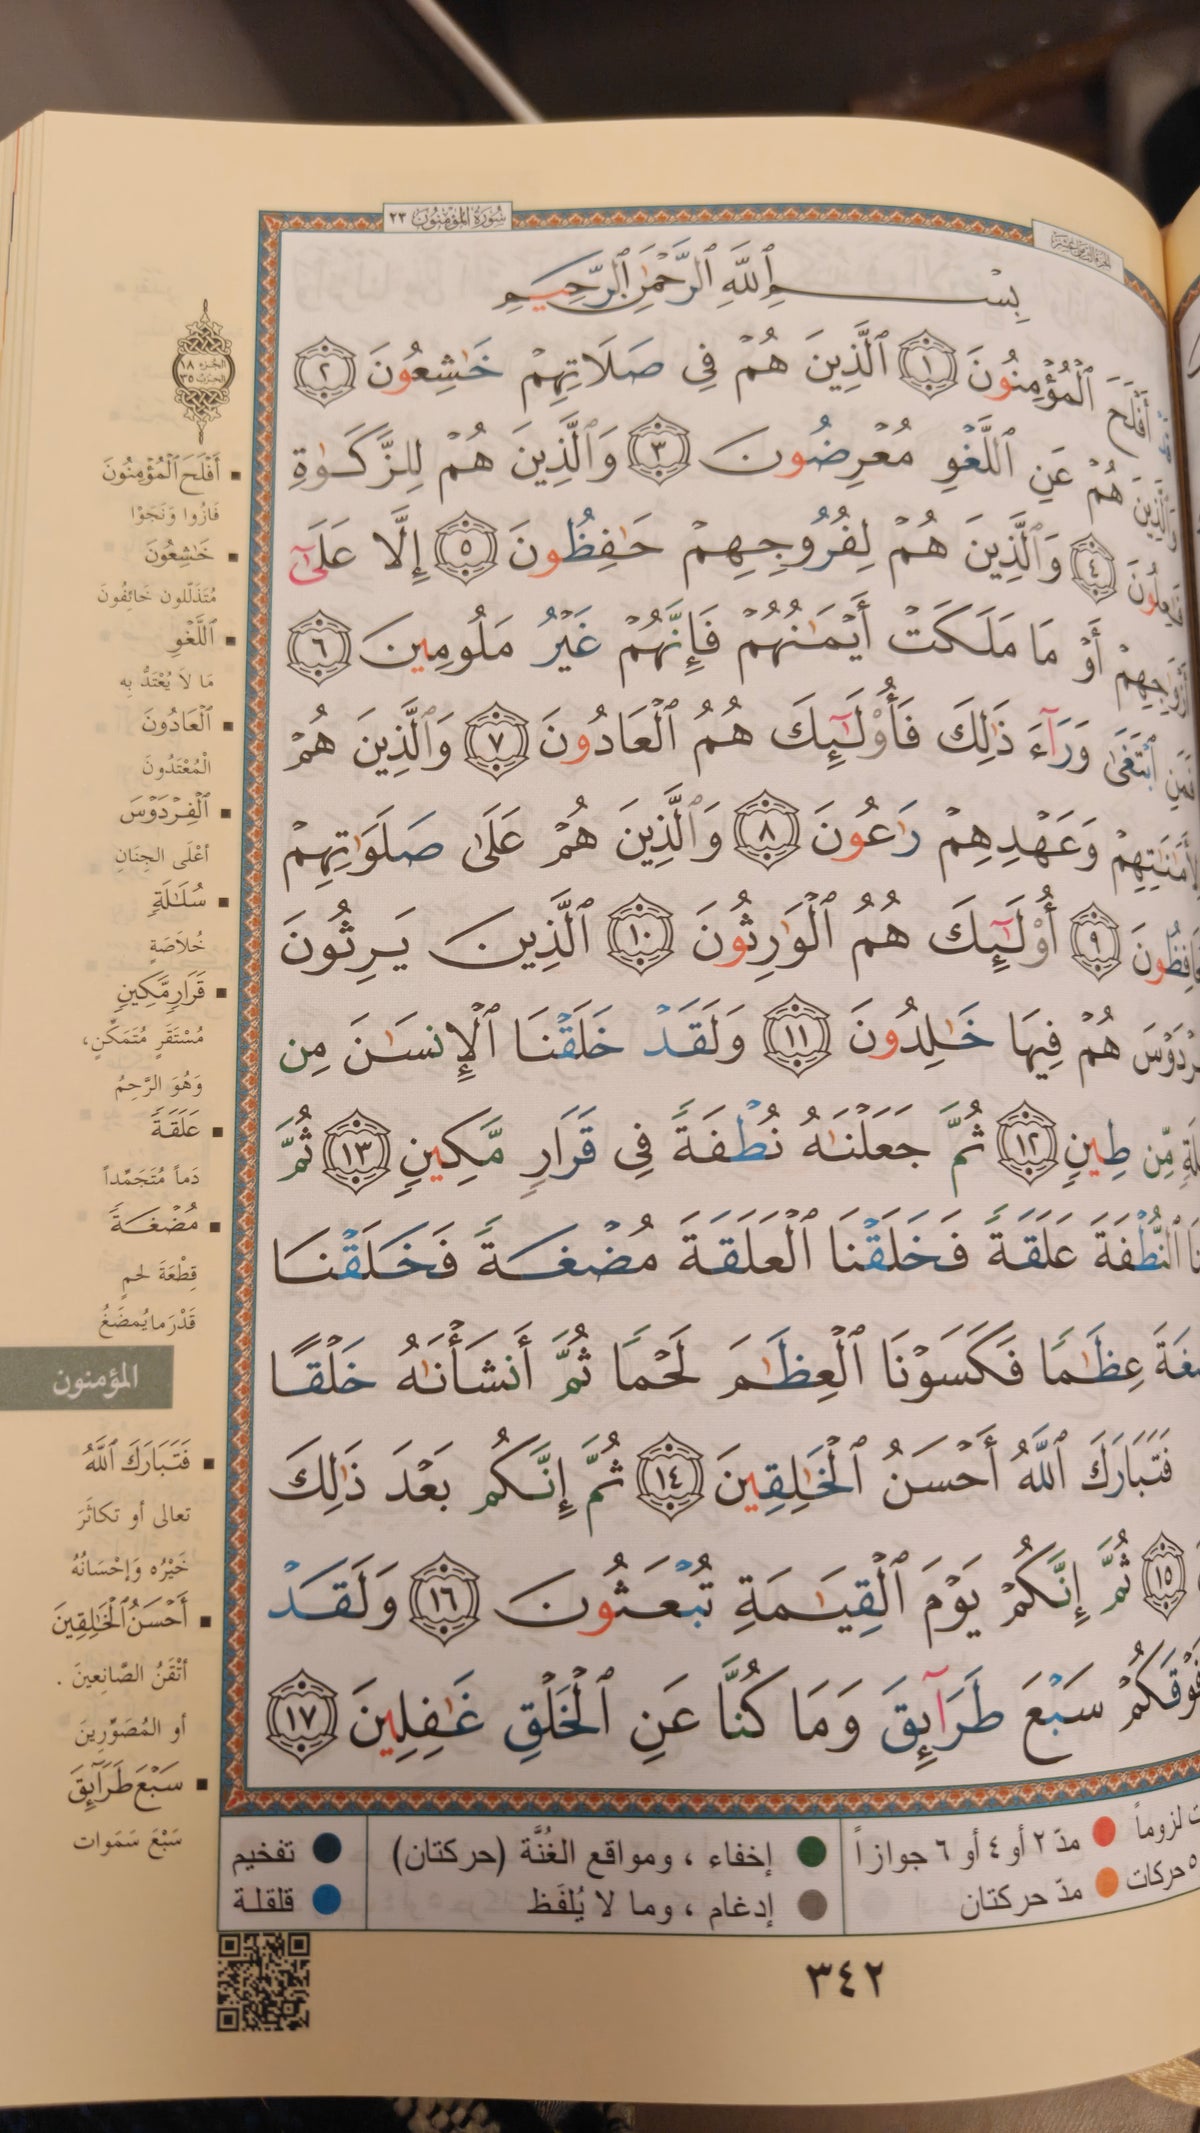 سُورَةُ المُؤْمِنُون ٢٣
بِسْمِ ٱللَّهِ ٱلرَّحْمَٰنِ ٱلرَّحِيمِ
أَفْلَحَ ٱلْمُؤْمِنُونَ ١ ٱلَّذِينَ هُمْ فِى صَلَاتِهِمْ خَٰشِعُونَ ٢
هُمْ عَنِ ٱللَّغْوِ مُعْرِضُونَ ٣ وَٱلَّذِينَ هُمْ لِلزَّكَوٰةِ
فَٰعِلُونَ ٤ وَٱلَّذِينَ هُمْ لِفُرُوجِهِمْ حَٰفِظُونَ ٥ إِلَّا عَلَىٰٓ
أَزْوَٰجِهِمْ أَوْ مَا مَلَكَتْ أَيْمَٰنُهُمْ فَإِنَّهُمْ غَيْرُ مَلُومِينَ ٦
فَمَنِ ٱبْتَغَىٰ وَرَآءَ ذَٰلِكَ فَأُو۟لَٰٓئِكَ هُمُ ٱلْعَادُونَ ٧ وَٱلَّذِينَ هُمْ
لِأَمَٰنَٰتِهِمْ وَعَهْدِهِمْ رَٰعُونَ ٨ وَٱلَّذِينَ هُمْ عَلَىٰ صَلَوَٰتِهِمْ
يُحَافِظُونَ ٩ أُو۟لَٰٓئِكَ هُمُ ٱلْوَٰرِثُونَ ١٠ ٱلَّذِينَ يَرِثُونَ
هُمْ فِيهَا خَٰلِدُونَ ١١ وَلَقَدْ خَلَقْنَا ٱلْإِنسَٰنَ مِن
مِّن طِينٍ ١٢ ثُمَّ جَعَلْنَٰهُ نُطْفَةً فِى قَرَارٍ مَّكِينٍ ١٣ ثُمَّ
ٱلنُّطْفَةَ عَلَقَةً فَخَلَقْنَا ٱلْعَلَقَةَ مُضْغَةً فَخَلَقْنَا
عِظَٰمًا فَكَسَوْنَا ٱلْعِظَٰمَ لَحْمًا ثُمَّ أَنشَأْنَٰهُ خَلْقًا
فَتَبَارَكَ ٱللَّهُ أَحْسَنُ ٱلْخَٰلِقِينَ ١٤ ثُمَّ إِنَّكُم بَعْدَ ذَٰلِكَ
١٥ ثُمَّ إِنَّكُمْ يَوْمَ ٱلْقِيَٰمَةِ تُبْعَثُونَ ١٦ وَلَقَدْ
فَوْقَكُمْ سَبْعَ طَرَآئِقَ وَمَا كُنَّا عَنِ ٱلْخَلْقِ غَٰفِلِينَ ١٧
الجزء ١٨
الحزب ٣٥
أَفْلَحَ ٱلْمُؤْمِنُونَ
فَازُوا وَنَجَوْا
خَٰشِعُونَ
مُتَذَلِّلون خَائِفُونَ
ٱللَّغْوِ
مَا لاَ يُعْتَدُّ بِه
ٱلْعَادُونَ
الْمُعْتَدُونَ
ٱلْفِرْدَوْسَ
أعْلَى الجِنَانِ
سُلَٰلَةٍ
خُلاَصَةٍ
قَرَارٍ مَّكِينٍ
مُسْتَقَرٍ مُتَمَكِّنٍ،
وَهُوَ الرَّحِمُ
عَلَقَةً
دَماً مُتَجَمِّداً
مُضْغَةً
قِطْعَةَ لحمٍ
قَدْرَ ما يُمضَغُ
المؤمنون
فَتَبَارَكَ ٱللَّهُ
تعالى أو تكاثَرَ
خَيْرُه وَإحْسَانُهُ
أَحْسَنُ ٱلْخَٰلِقِينَ
أتْقَنُ الصَّانِعينَ .
أو المُصَوِّرِينَ
سَبْعَ طَرَآئِقَ
سَبْعَ سَمَوات
لزوماً
حركات
مدّ ٢ أو ٤ أو ٦ جوازاً
مدّ حركتان
إخفاء ، ومواقع الغُنَّة (حركتان)
إدغام ، وما لا يُلفَظ
تفخيم
قلقلة
٣٤٢